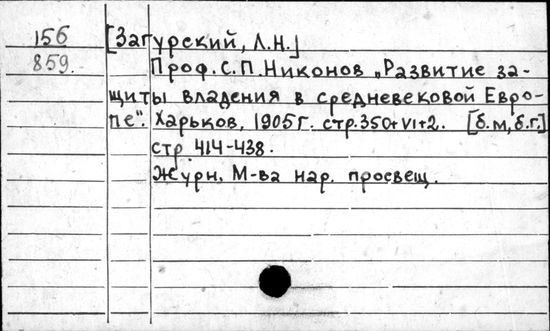 156 [Загурский, Л.Н.]
859. Проф. С.П. Никонов „Развитие за-
щиты владения в средневековой Евро-
пе". Харьков, 1905 г. стр. 350+VI+2. [б.м, б.г.]
стр. 414-438.
Журн. М-ва нар. просвещ.